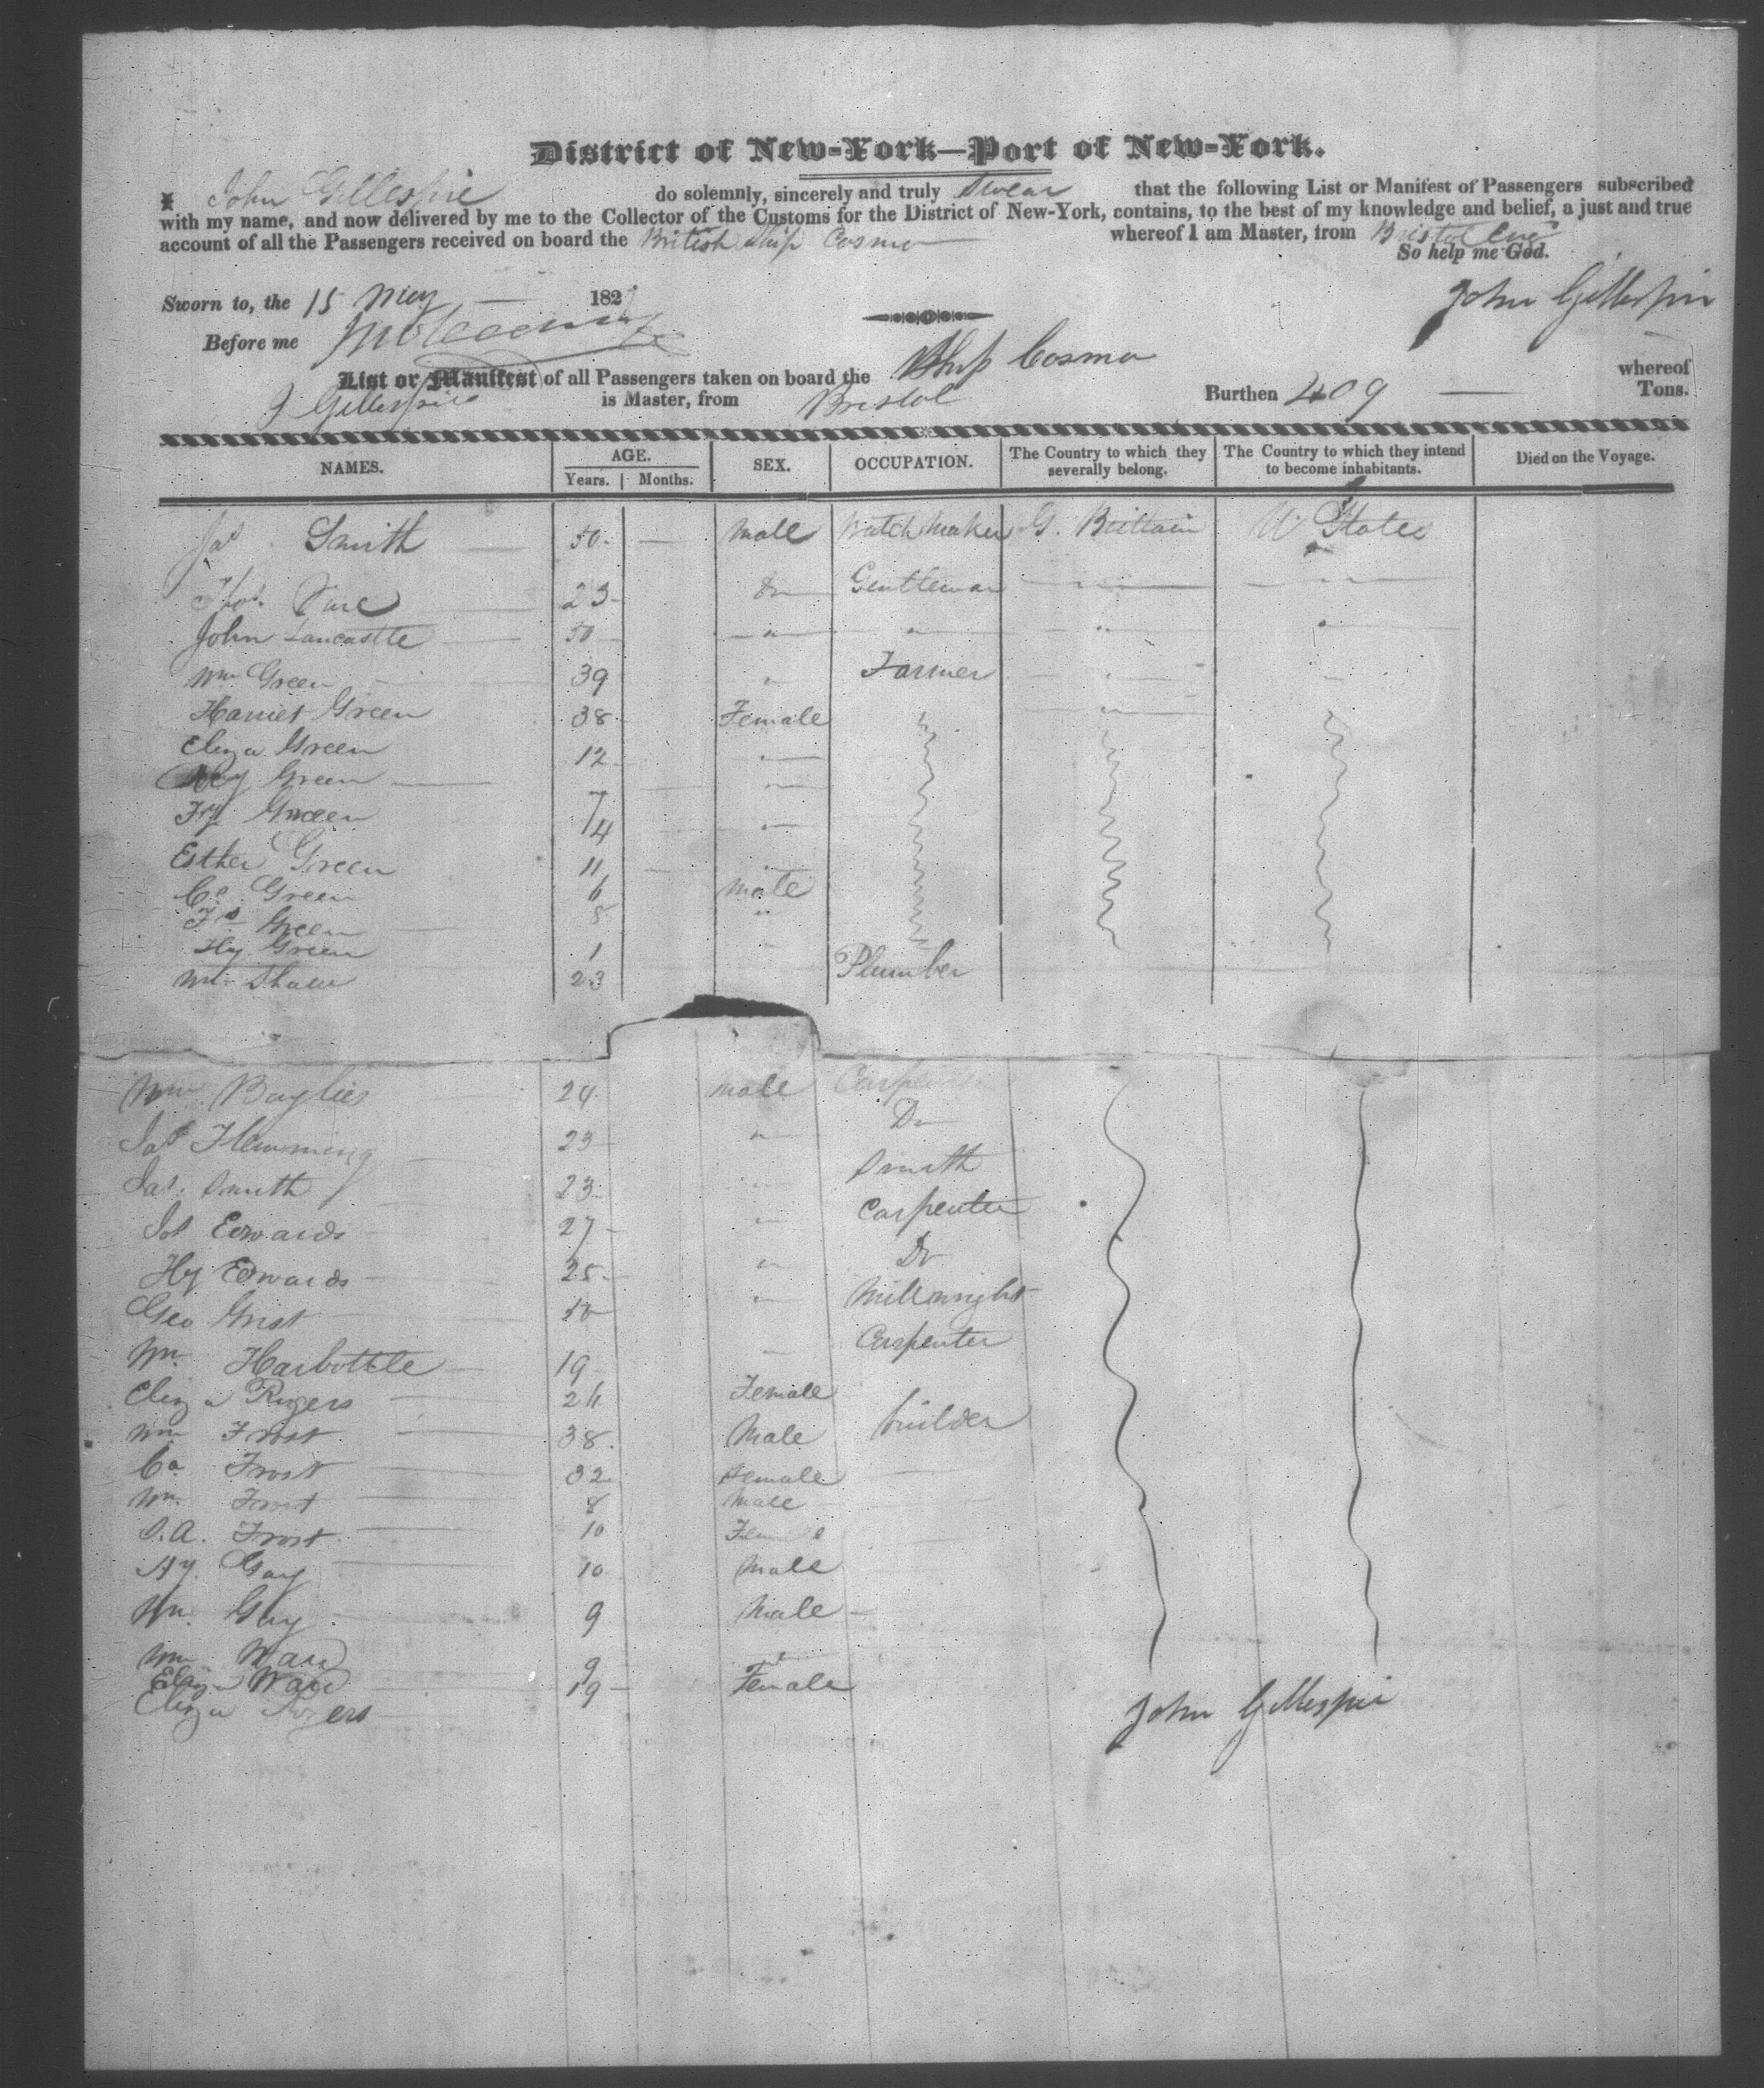 District of New-York—Port of New-York.
I John Gillespie do solemnly, sincerely and truly Swear that the following List or Manifest of Passengers subscribed
with my name, and now delivered by me to the Collector of the Customs for the District of New-York, contains, to the best of my knowledge and belief, a just and true
account of all the Passengers received on board the British Ship Cosmo whereof I am Master, from Bristol
So help me God.
Sworn to, the 15 May 182 John Gillespie
Before me
List or Manifest of all Passengers taken on board the Ship Cosmo whereof
J Gillespie is Master, from Bristol Burthen 409 Tons.
NAMES. AGE. Years. Months. SEX. OCCUPATION. The Country to which they severally belong. The Country to which they intend to become inhabitants. Died on the Voyage.
Jas Smith 50 — Male Watch Maker G. Brittain U States
Thos. 23 Do Gentleman " "
John Lancastle 50 " " " "
Wm Green 39 " Farmer "
Harriet Green 38 Female "
Eliza Green 12 "
Green 7 "
Fy Green 4 "
Esther Green 11 "
Co Green 6 Male
Fs Green 5 "
Hy Green 1 "
Wm Shaw 23 Plumber
Wm Baylies 24 Male Carpenter
Jas Flemming 23 " Do
Jas. Smith 23 " Smith
Jos Edwards 27 " Carpenter
Hy Edwards 25 " Do
Geo Grist 50 " Millwright
Wm. Harbottle 19 " Carpenter
Eliza Rogers 26 Female
Wm Frost 38 Male builder
Ca Frost 32 Female
Wm. Frost 8 Male
S.A. Frost 10 Female
Hy. Gay 10 Male
Wm. Gay 9 Male
Wm Ward 9 "
Eliza Ward 19 Female
Eliza Rogers
John Gillespie